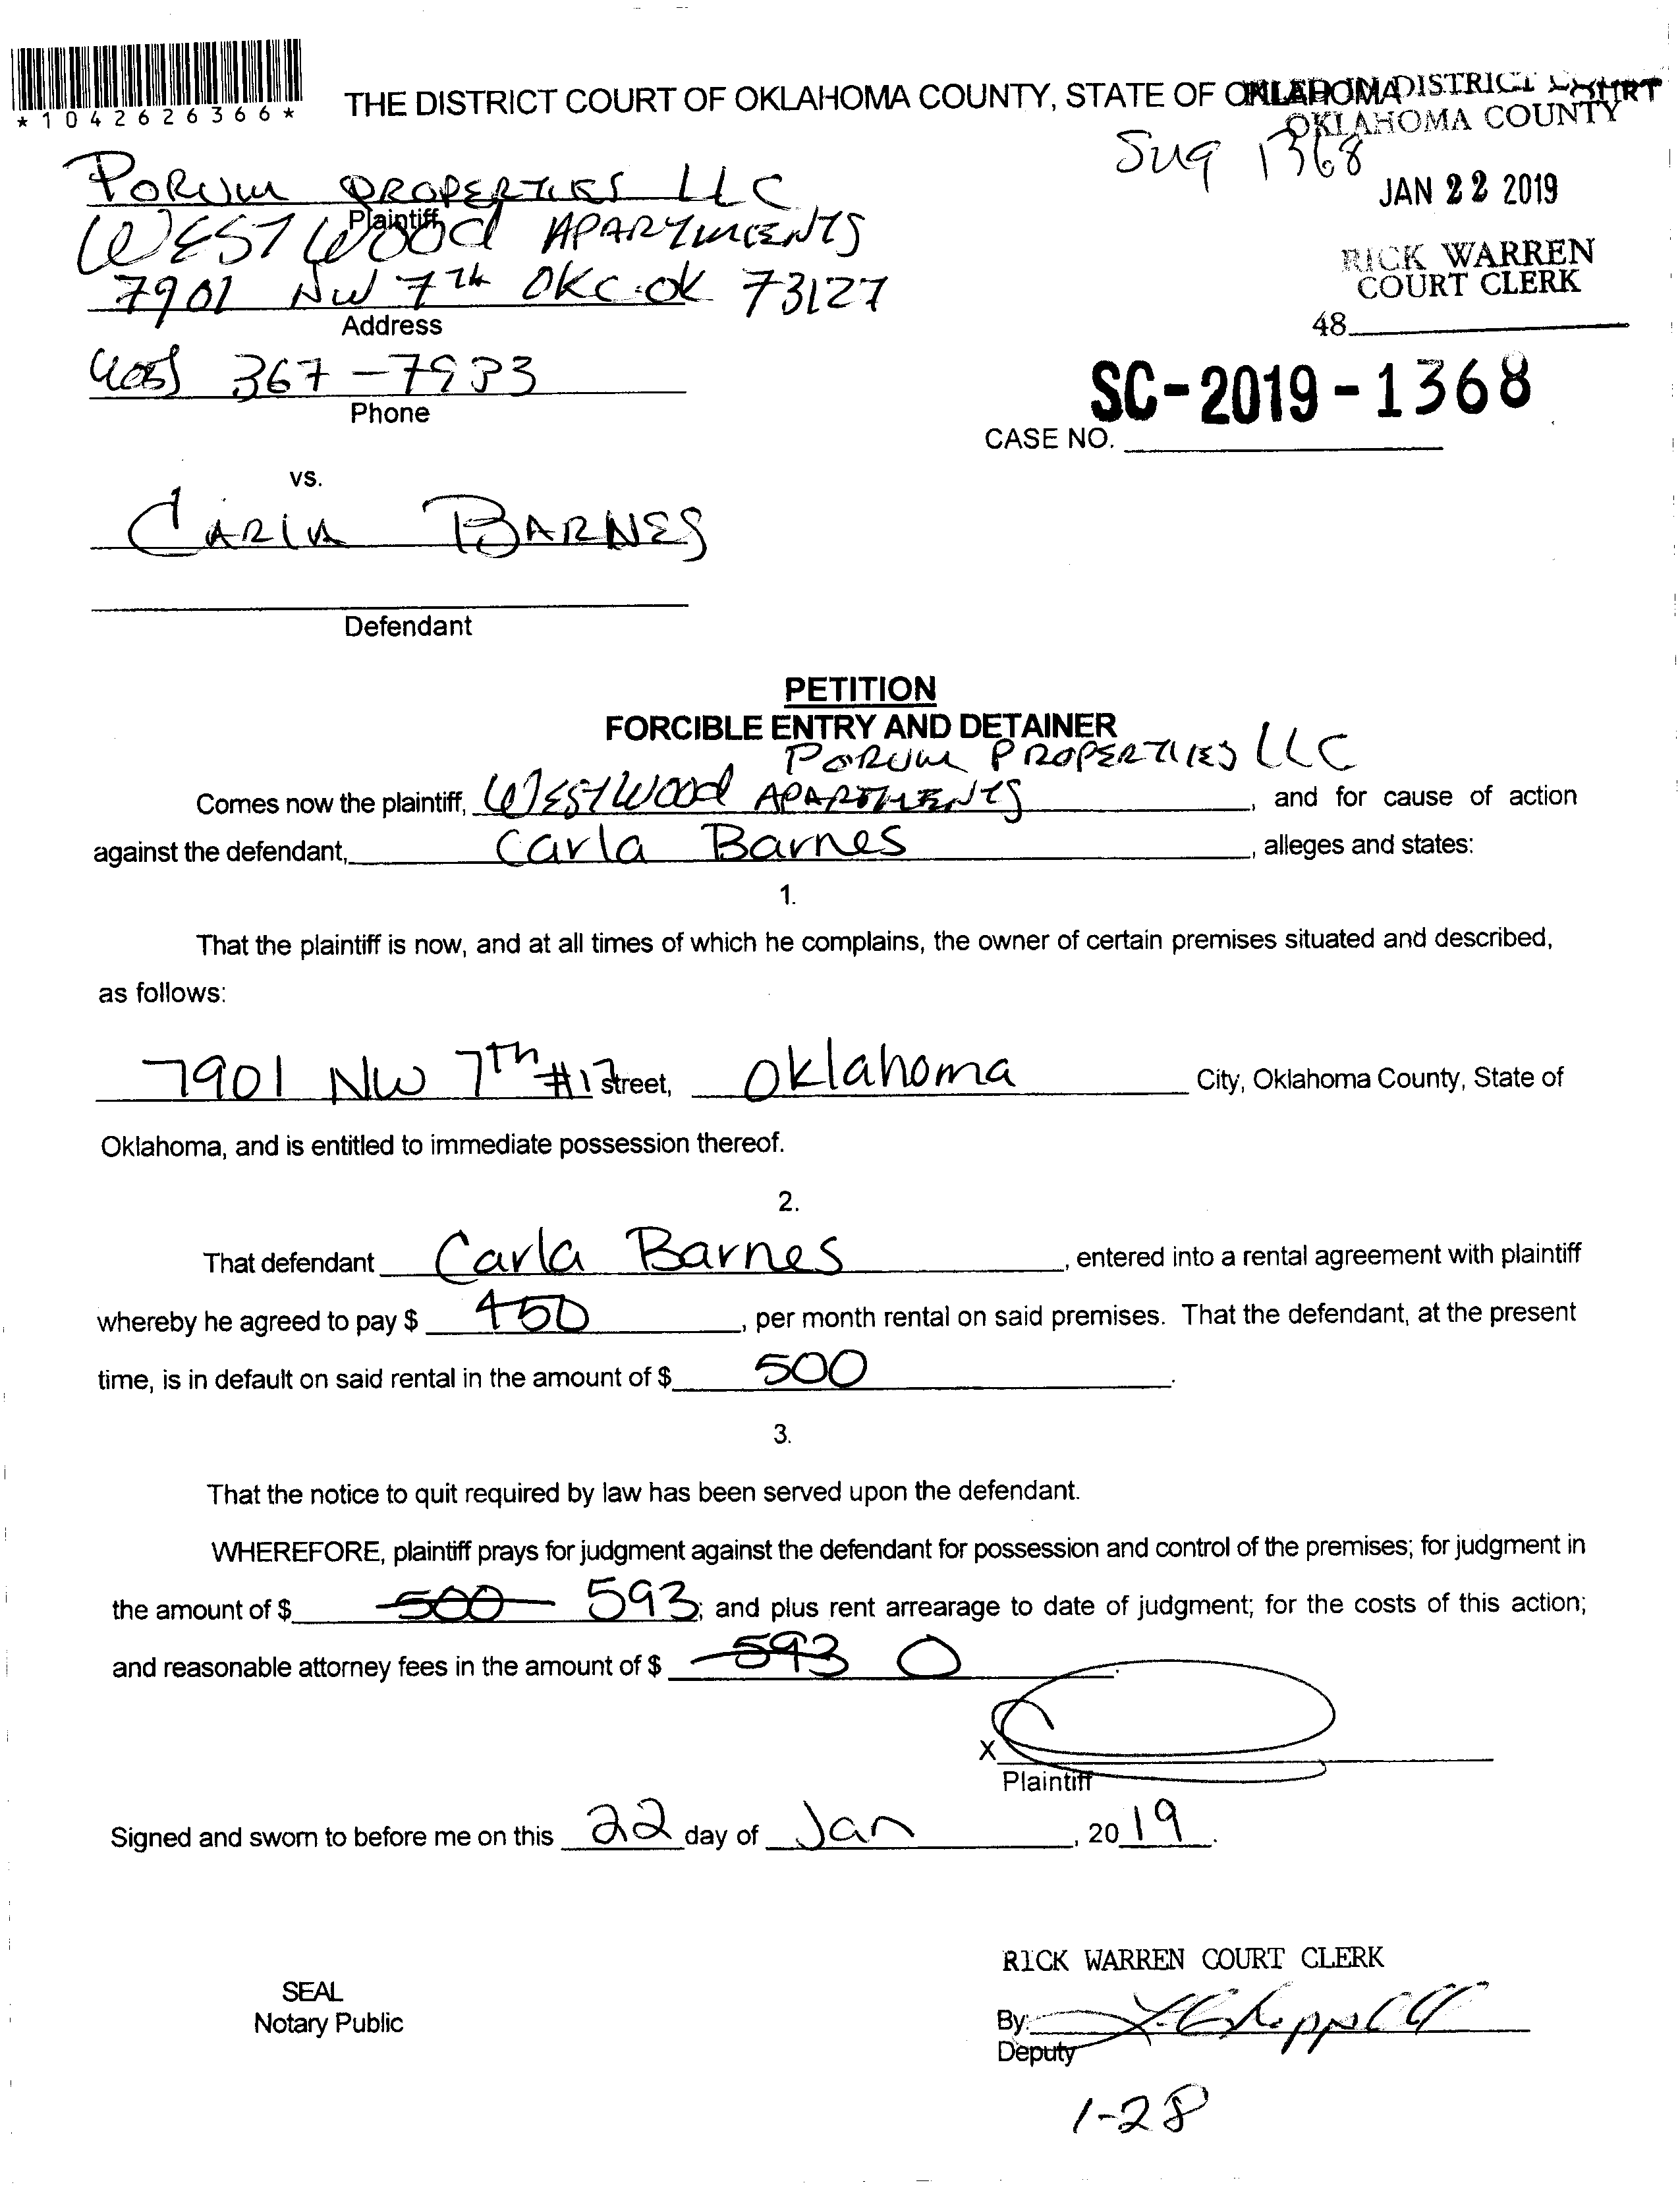 *1042626366*
THE DISTRICT COURT OF OKLAHOMA COUNTY, STATE OF OKLAHOMA
FILED IN DISTRICT COURT
OKLAHOMA COUNTY
1368
JAN 22 2019
RICK WARREN
COURT CLERK
48
PORUM PROPERTIES LLC
Plaintiff
WESTWOOD APARTMENTS
7901 NW 7th OKC OK 73127
Address
405 367-7933
Phone
SC-2019-1368
CASE NO.
vs.
CARLA BARNES
Defendant
PETITION
FORCIBLE ENTRY AND DETAINER
PORUM PROPERTIES LLC
Comes now the plaintiff, WESTWOOD APARTMENTS, and for cause of action
against the defendant, Carla Barnes, alleges and states:
1.
That the plaintiff is now, and at all times of which he complains, the owner of certain premises situated and described,
as follows:
7901 NW 7th street, Oklahoma City, Oklahoma County, State of
Oklahoma, and is entitled to immediate possession thereof.
2.
That defendant Carla Barnes, entered into a rental agreement with plaintiff
whereby he agreed to pay $ 450, per month rental on said premises. That the defendant, at the present
time, is in default on said rental in the amount of $ 500.
3.
That the notice to quit required by law has been served upon the defendant.
WHEREFORE, plaintiff prays for judgment against the defendant for possession and control of the premises; for judgment in
the amount of $ 500 593; and plus rent arrearage to date of judgment; for the costs of this action;
and reasonable attorney fees in the amount of $ 593 0.
X
Plaintiff
Signed and sworn to before me on this 22 day of Jan, 2019.
RICK WARREN COURT CLERK
SEAL
Notary Public
By:
Deputy
1-28